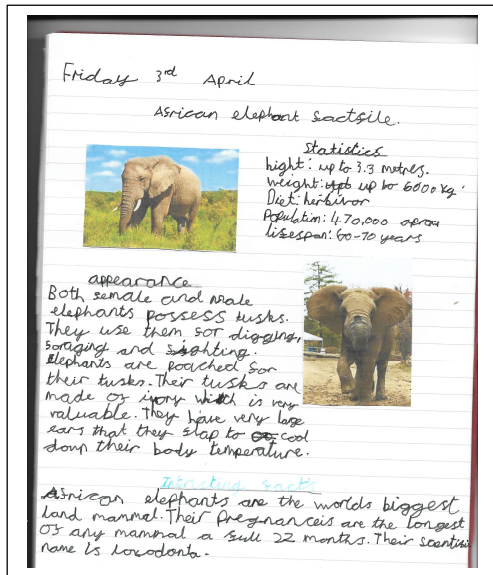 Friday 3rd April
African elephant factfile.
Statistics
hight: up to 3.3 metres.
weight: up to 6000 kg.
Diet: herbivor
Population: 470,000
lifespan: 60-70 years
appearance
Both female and male
elephants possess tusks.
They use them for digging,
foraging and fighting.
Elephants are poached for
their tusks. Their tusks are
made of ivory which is very
valuable. They have very large
ears that they flap to cool
down their body temperature.
Intresting facts
African elephants are the worlds biggest
land mammal. Their Pregnanceis are the longest
of any mammal a full 22 months. Their
name is loxodonta.